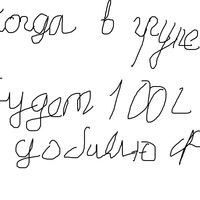 когда в групе
будет 100
добавлю ф